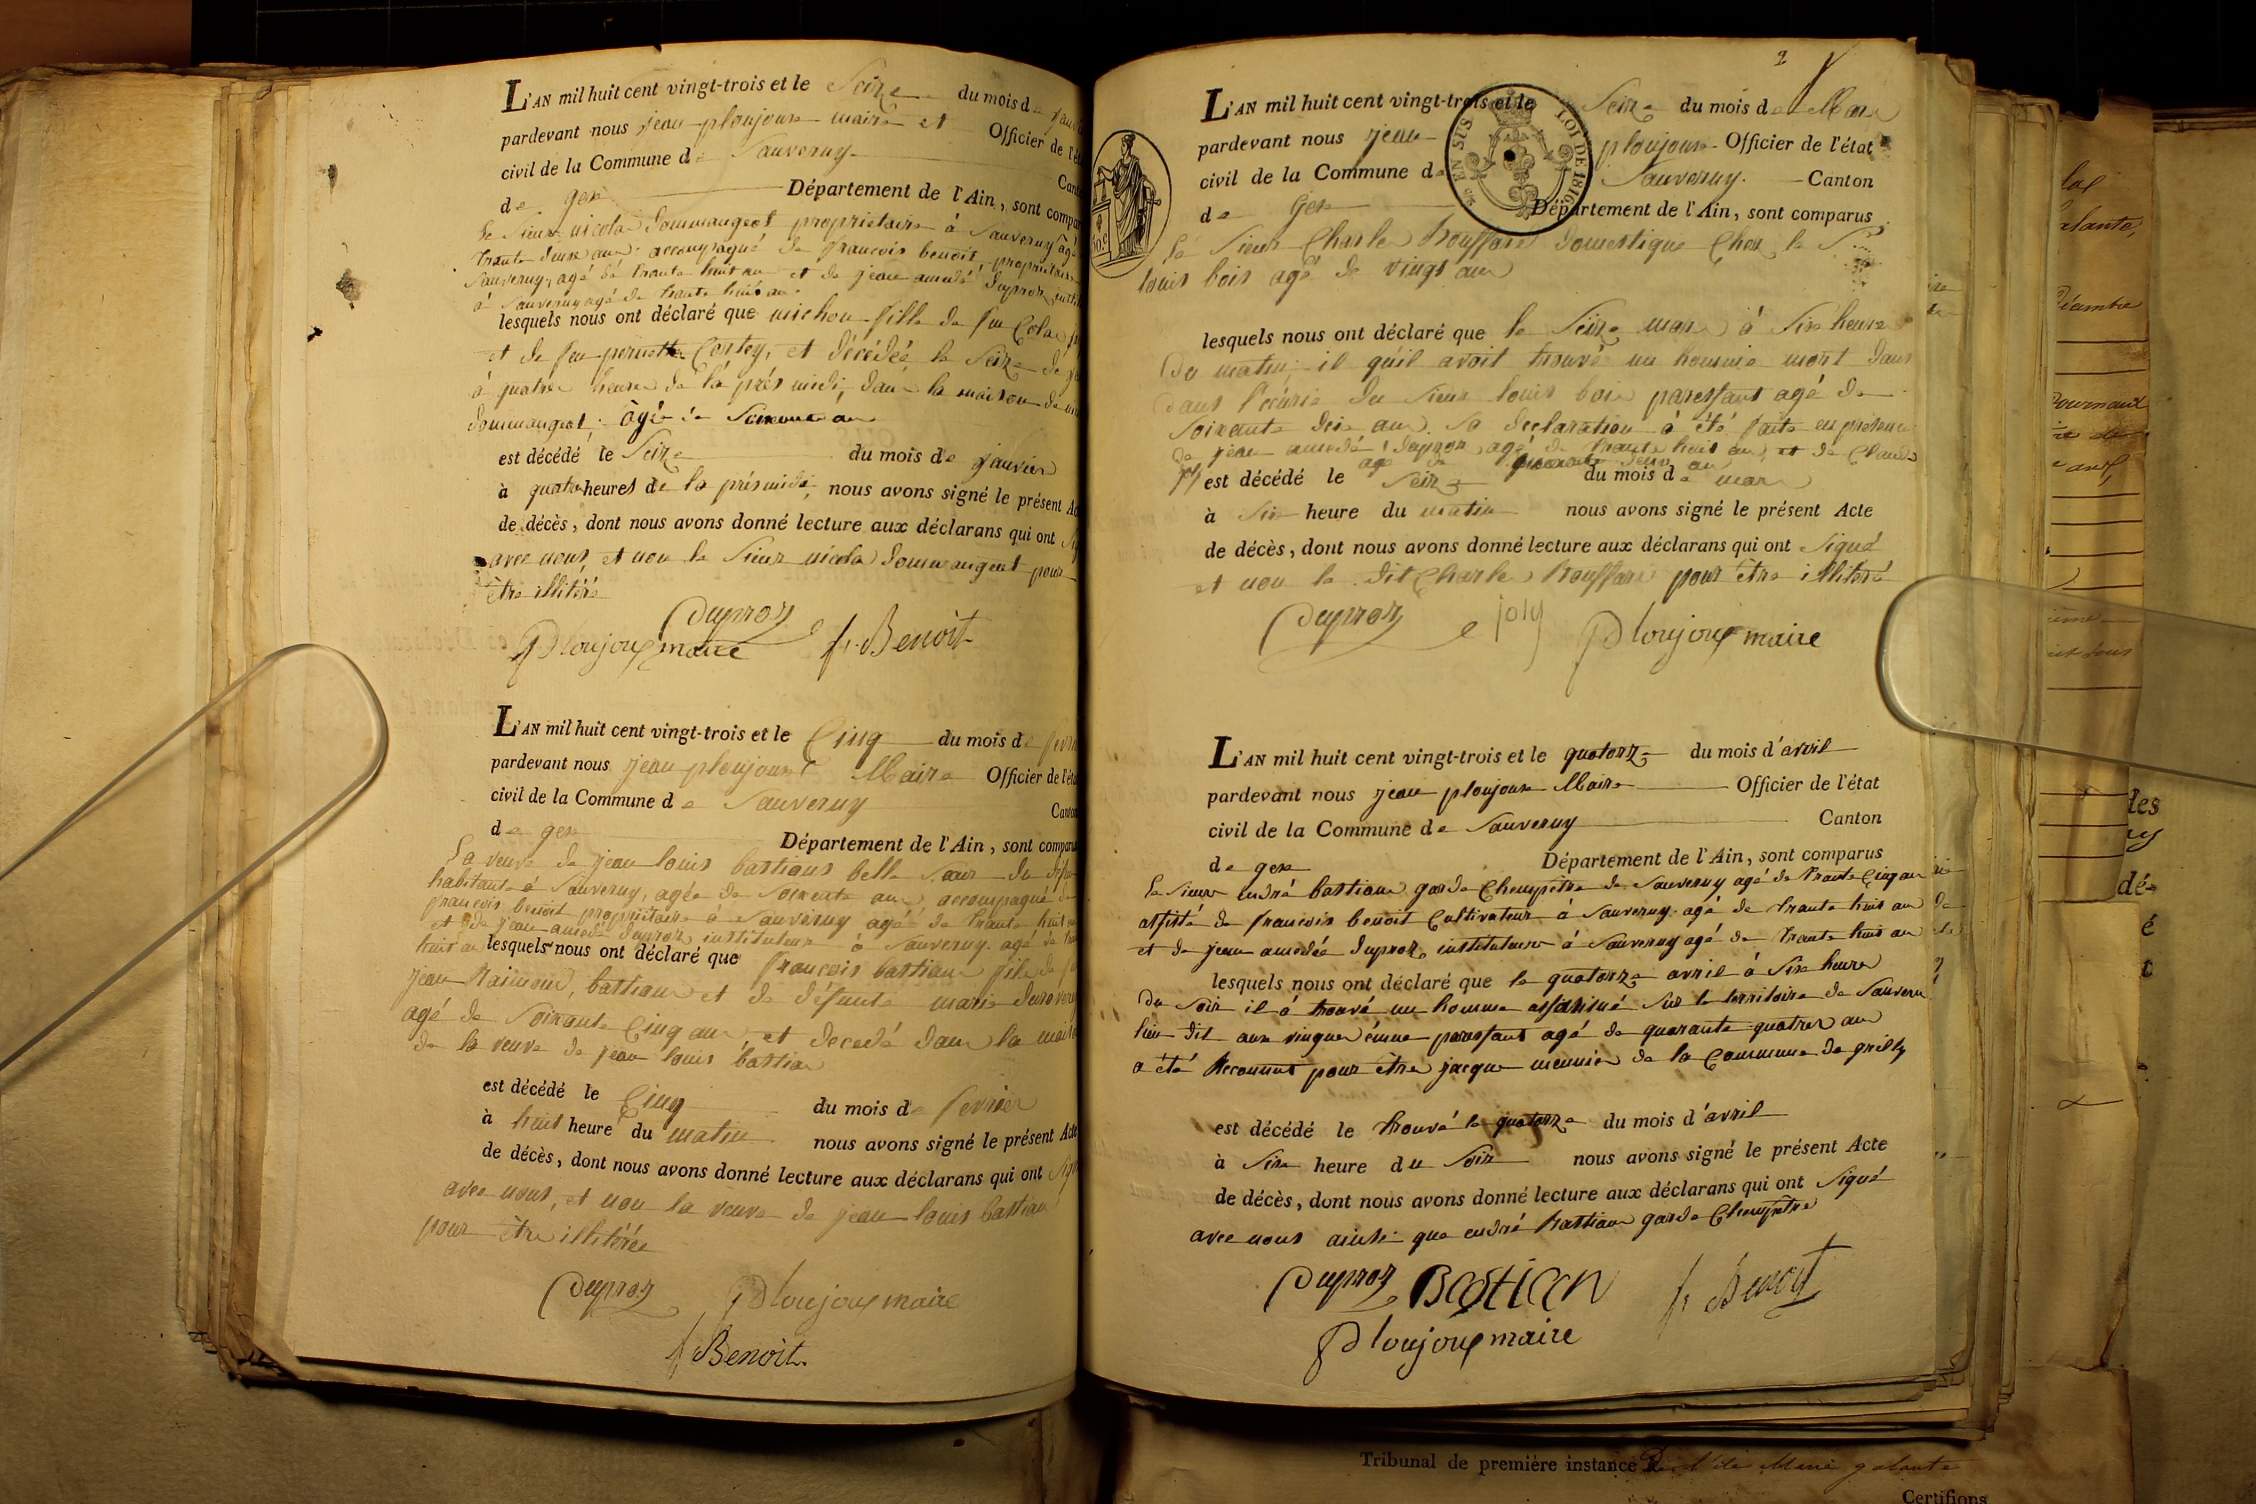 L'AN mil huit cent vingt-trois et le Seize du mois de
pardevant nous jean ploujoux maire et Officier de l'
civil de la Commune de Sauverny
de gex Département de l'Ain, sont
le Sieur nicolas Dommangeot propriétaire à Sauverny
trante deux ans accompagné de francois benoit, propriétaire
Sauverny, agé de trante huit an et de jean amedé Duproz
à Sauverny agé de trante huit an.
lesquels nous ont déclaré que michou fille de feu Colas
et de feu pernette Cortey, et décédée le Seize de
à quatre heure de la près midi, dans la maison de
dommangeot, âgé de Soixante an
est décédé le Seize du mois de janvier
à quatre heures de la près midi, nous avons signé le présent
de décès, dont nous avons donné lecture aux déclarans qui ont
avec nous, et non le Sieur nicolas Dommangeot pour
être illitéré
Duproz
Ploujoux maire f. Benoit
L'AN mil huit cent vingt-trois et le Cinq du mois de
pardevant nous jean ploujoux Maire Officier de
civil de la Commune de Sauverny Canton
de gex Département de l'Ain, sont
La veuve de jean louis bastians belle Sœur du
habitante à Sauverny, agée de Soixante ans, accompagné de
francois benoit propriétaire à Sauverny agéé de trante huit
et de jean amedé Duproz instituteur à Sauverny agé de
huit an lesquels nous ont déclaré que francois bastian fils de
jean Raimond, bastian et de défunte marie
agé de Soixante Cinq ans et decedé dans la
de la veuve de jean louis bastian
est décédé le Cinq du mois de fevrier
à huit heure du matin nous avons signé le présent Acte
de décès, dont nous avons donné lecture aux déclarans qui ont
avec nous, et non la veuve de jean louis bastian
pour être illitérée
Duproz Ploujoux maire
f Benoit.
2
L'AN mil huit cent vingt-trois et le Seize du mois de Mars
pardevant nous jean ploujoux Officier de l'état
civil de la Commune de Sauverny. Canton
de Gex Département de l'Ain, sont comparus
EN SUS LOI DE 1816
le Sieur Charles Rouffard Domestique Chez le Sr
louis bois agé de vingt ans
lesquels nous ont déclaré que le Seize mars à Six heure
Du matin il qu'il avoit trouvé un homme mort dans
dans l'écurie du Sieur louis bois paressant agé de
Soixante dix ans. Sa declaration à été faite en présence
de jean amedé Duproz agé de trante huit ans et de Claude
joly est décédé le agé de quarante deux ans Seize du mois de mars
à Six heure du matin nous avons signé le présent Acte
de décès, dont nous avons donné lecture aux déclarans qui ont Signé
et non le dit Charles Rouffard pour être illitéré
Duproz joly Ploujoux maire
L'AN mil huit cent vingt-trois et le quatorze du mois d'avril
pardevant nous jean ploujoux Maire Officier de l'état
civil de la Commune de Sauverny Canton
de gex Département de l'Ain, sont comparus
le Sieur andré bastian garde Champêtre de Sauverny agé de trante Cinq an
assisté de francois benoit Cultivateur à Sauverny agé de trante huit an
et de jean amedée Duproz instituteur à Sauverny agé de trante huit an
lesquels nous ont déclaré que le quatorze avril à Six heure
Du Soir il à trouvé un homme assassiné Sur le territoire de Sauverny
lieu dit aux paressant agé de quarante quatre an
a été Reconnut pour être jacque meunier de la Commune de grilly
est décédé le trouvé le quatorze du mois d'avril
à Six heure du Soir nous avons signé le présent Acte
de décès, dont nous avons donné lecture aux déclarans qui ont Signé
avec nous ainsi que andré bastian garde Champêtre
Duproz Bastian f. Benoit
Ploujoux maire
Tribunal de première instance
Certifions